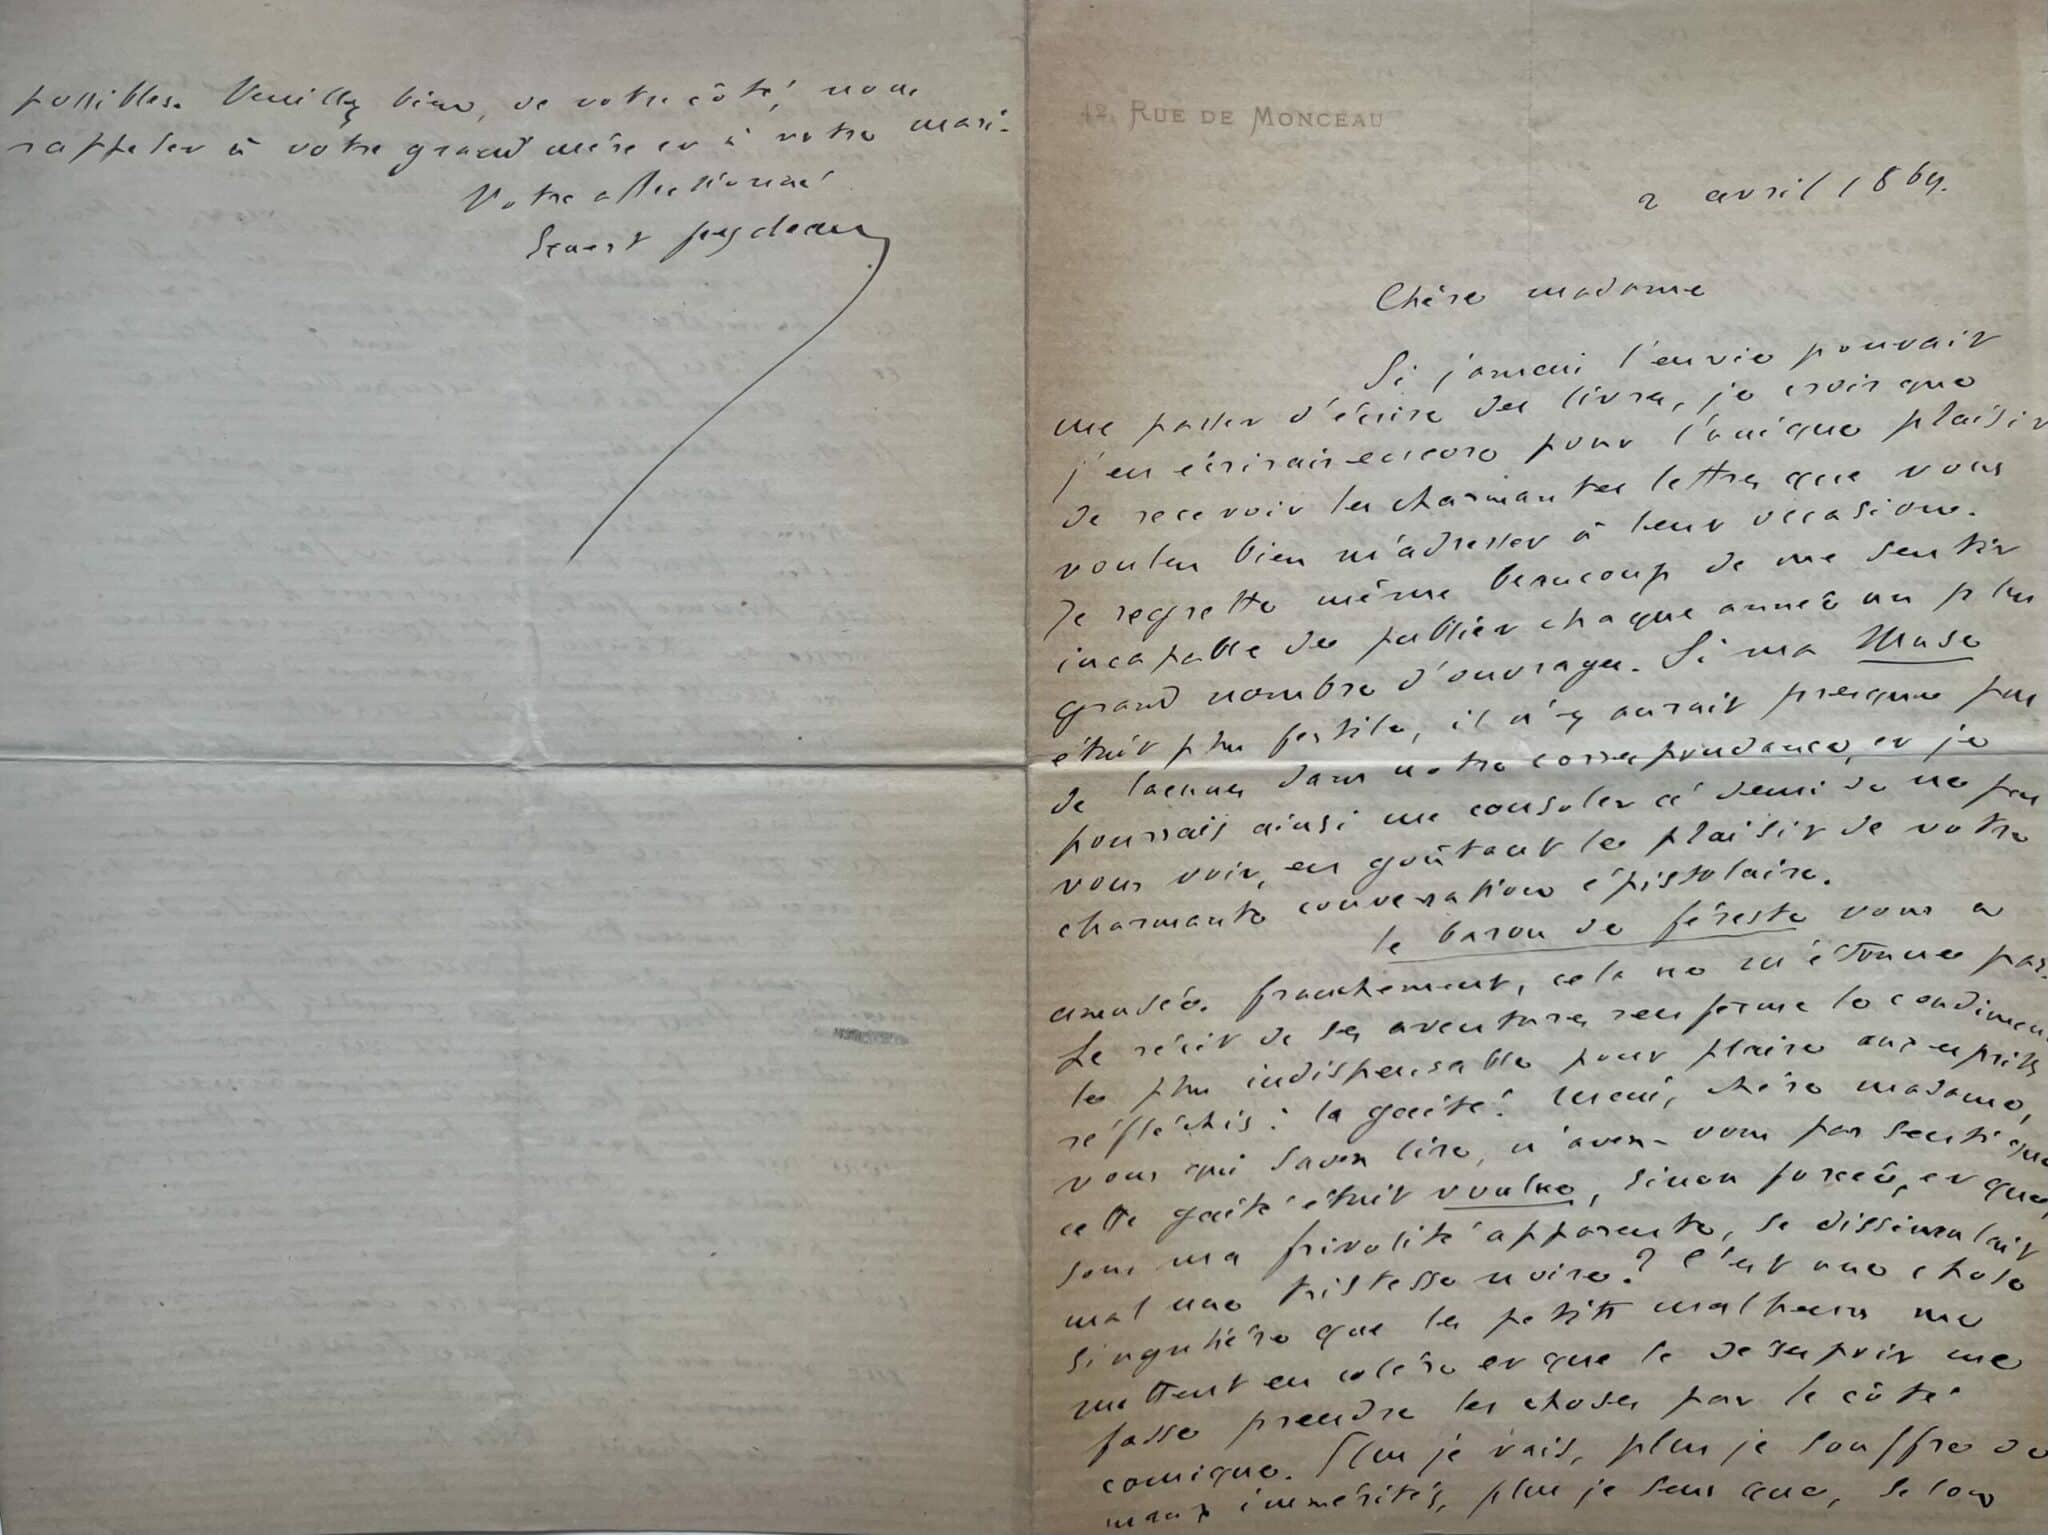 12, RUE DE MONCEAU
2 avril 1869.
Chère madame
Si jamais l'envie pouvait
me passer d'écrire des livres, je crois que
j'en écrirais encore pour l'unique plaisir
de recevoir les charmantes lettres que vous
voulez bien m'adresser à leur occasion.
Je regrette même beaucoup de me sentir
incapable de publier chaque année un plus
grand nombre d'ouvrages. Si ma Muse
était plus fertile, il n'y aurait presque pas
de lacunes dans notre correspondance, et je
pourrais ainsi me consoler à demi de ne pas
vous voir, en goûtant le plaisir de votre
charmante conversation épistolaire.
le baron de féreste vous a
amusée. franchement, cela ne m'étonne pas.
Le récit de ses aventures renferme le condiment
le plus indispensable pour plaire aux esprits
réfléchis : la gaité. Mais, chère madame,
vous qui savez lire, n'avez-vous pas senti que
cette gaité était voulue, sinon forcée, et que,
sous ma frivolité apparente, se dissimulait
mal une tristesse noire ? C'est une chose
singulière que les petits malheurs me
mettent en colère et que le désespoir me
fasse prendre les choses par le côté
comique. Plus je vais, plus je souffre de
maux immérités, plus je sens que, selon
possibles. Veuillez bien, de votre côté, nous
rappeler à votre grand mère et à votre mari.
Votre affectionné
Ernest feydeau